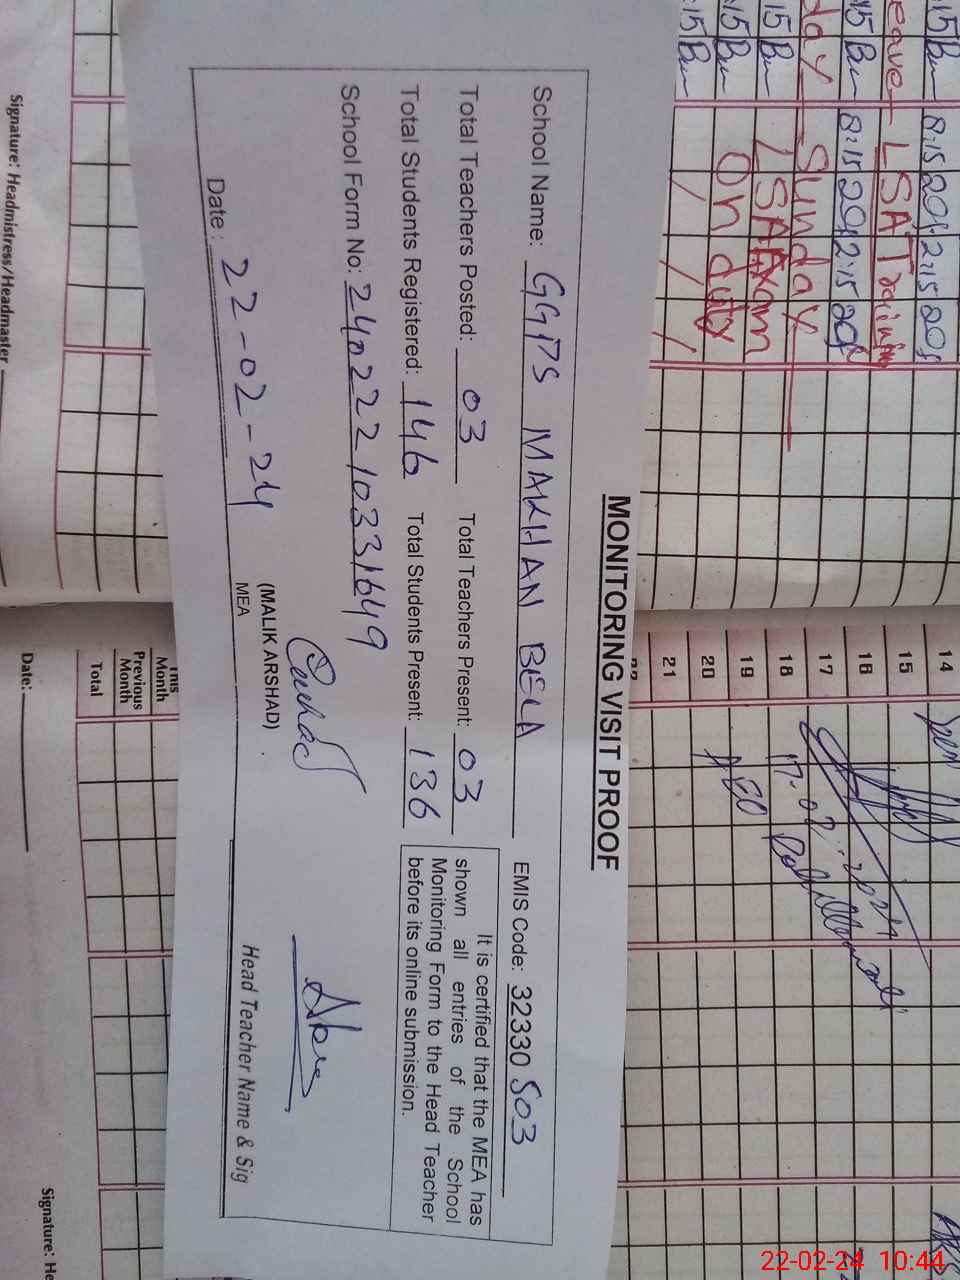 MONITORING VISIT PROOF
School Name: GGPS MAKHAN BELA EMIS Code: 32330503
Total Teachers Posted: 03 Total Teachers Present: 03
Total Students Registered: 146 Total Students Present: 136
It is certified that the MEA has
shown all entries of the School
Monitoring Form to the Head Teacher
before its online submission.
School Form No: 24022210331649
Date: 22-02-24
(MALIK ARSHAD)
MEA
Head Teacher Name & Sig
8:15 2:15
Leave LSA Training
8:15 2:15
Sunday
LSA Exam
On duty
14
15
16
17
18
19
20
21
22
17-02-2024
AEO
This
Month
Previous
Month
Total
Signature: Headmistress/Headmaster
Date:
Signature: He
22-02-24 10:44